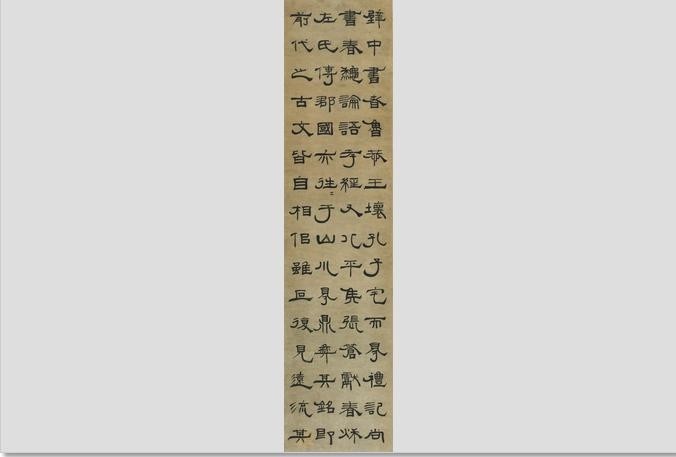 壁中書者魯恭王壞孔子宅而㝵禮記尚
書春龝論語孝經又北平矦張蒼獻春秌
左氏傳郡國亦往〻于山川㝵鼎彝其銘即
前代之古文皆自相佀雖叵復見遠流其